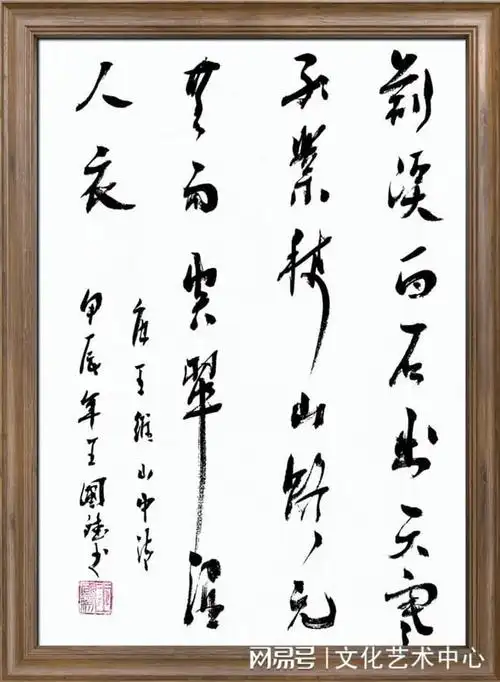 荆溪白石出天寒
红葉稀山路元
無雨空翠湿
人衣
唐王維山中诗
甲辰年王國书
网易号 | 文化艺术中心